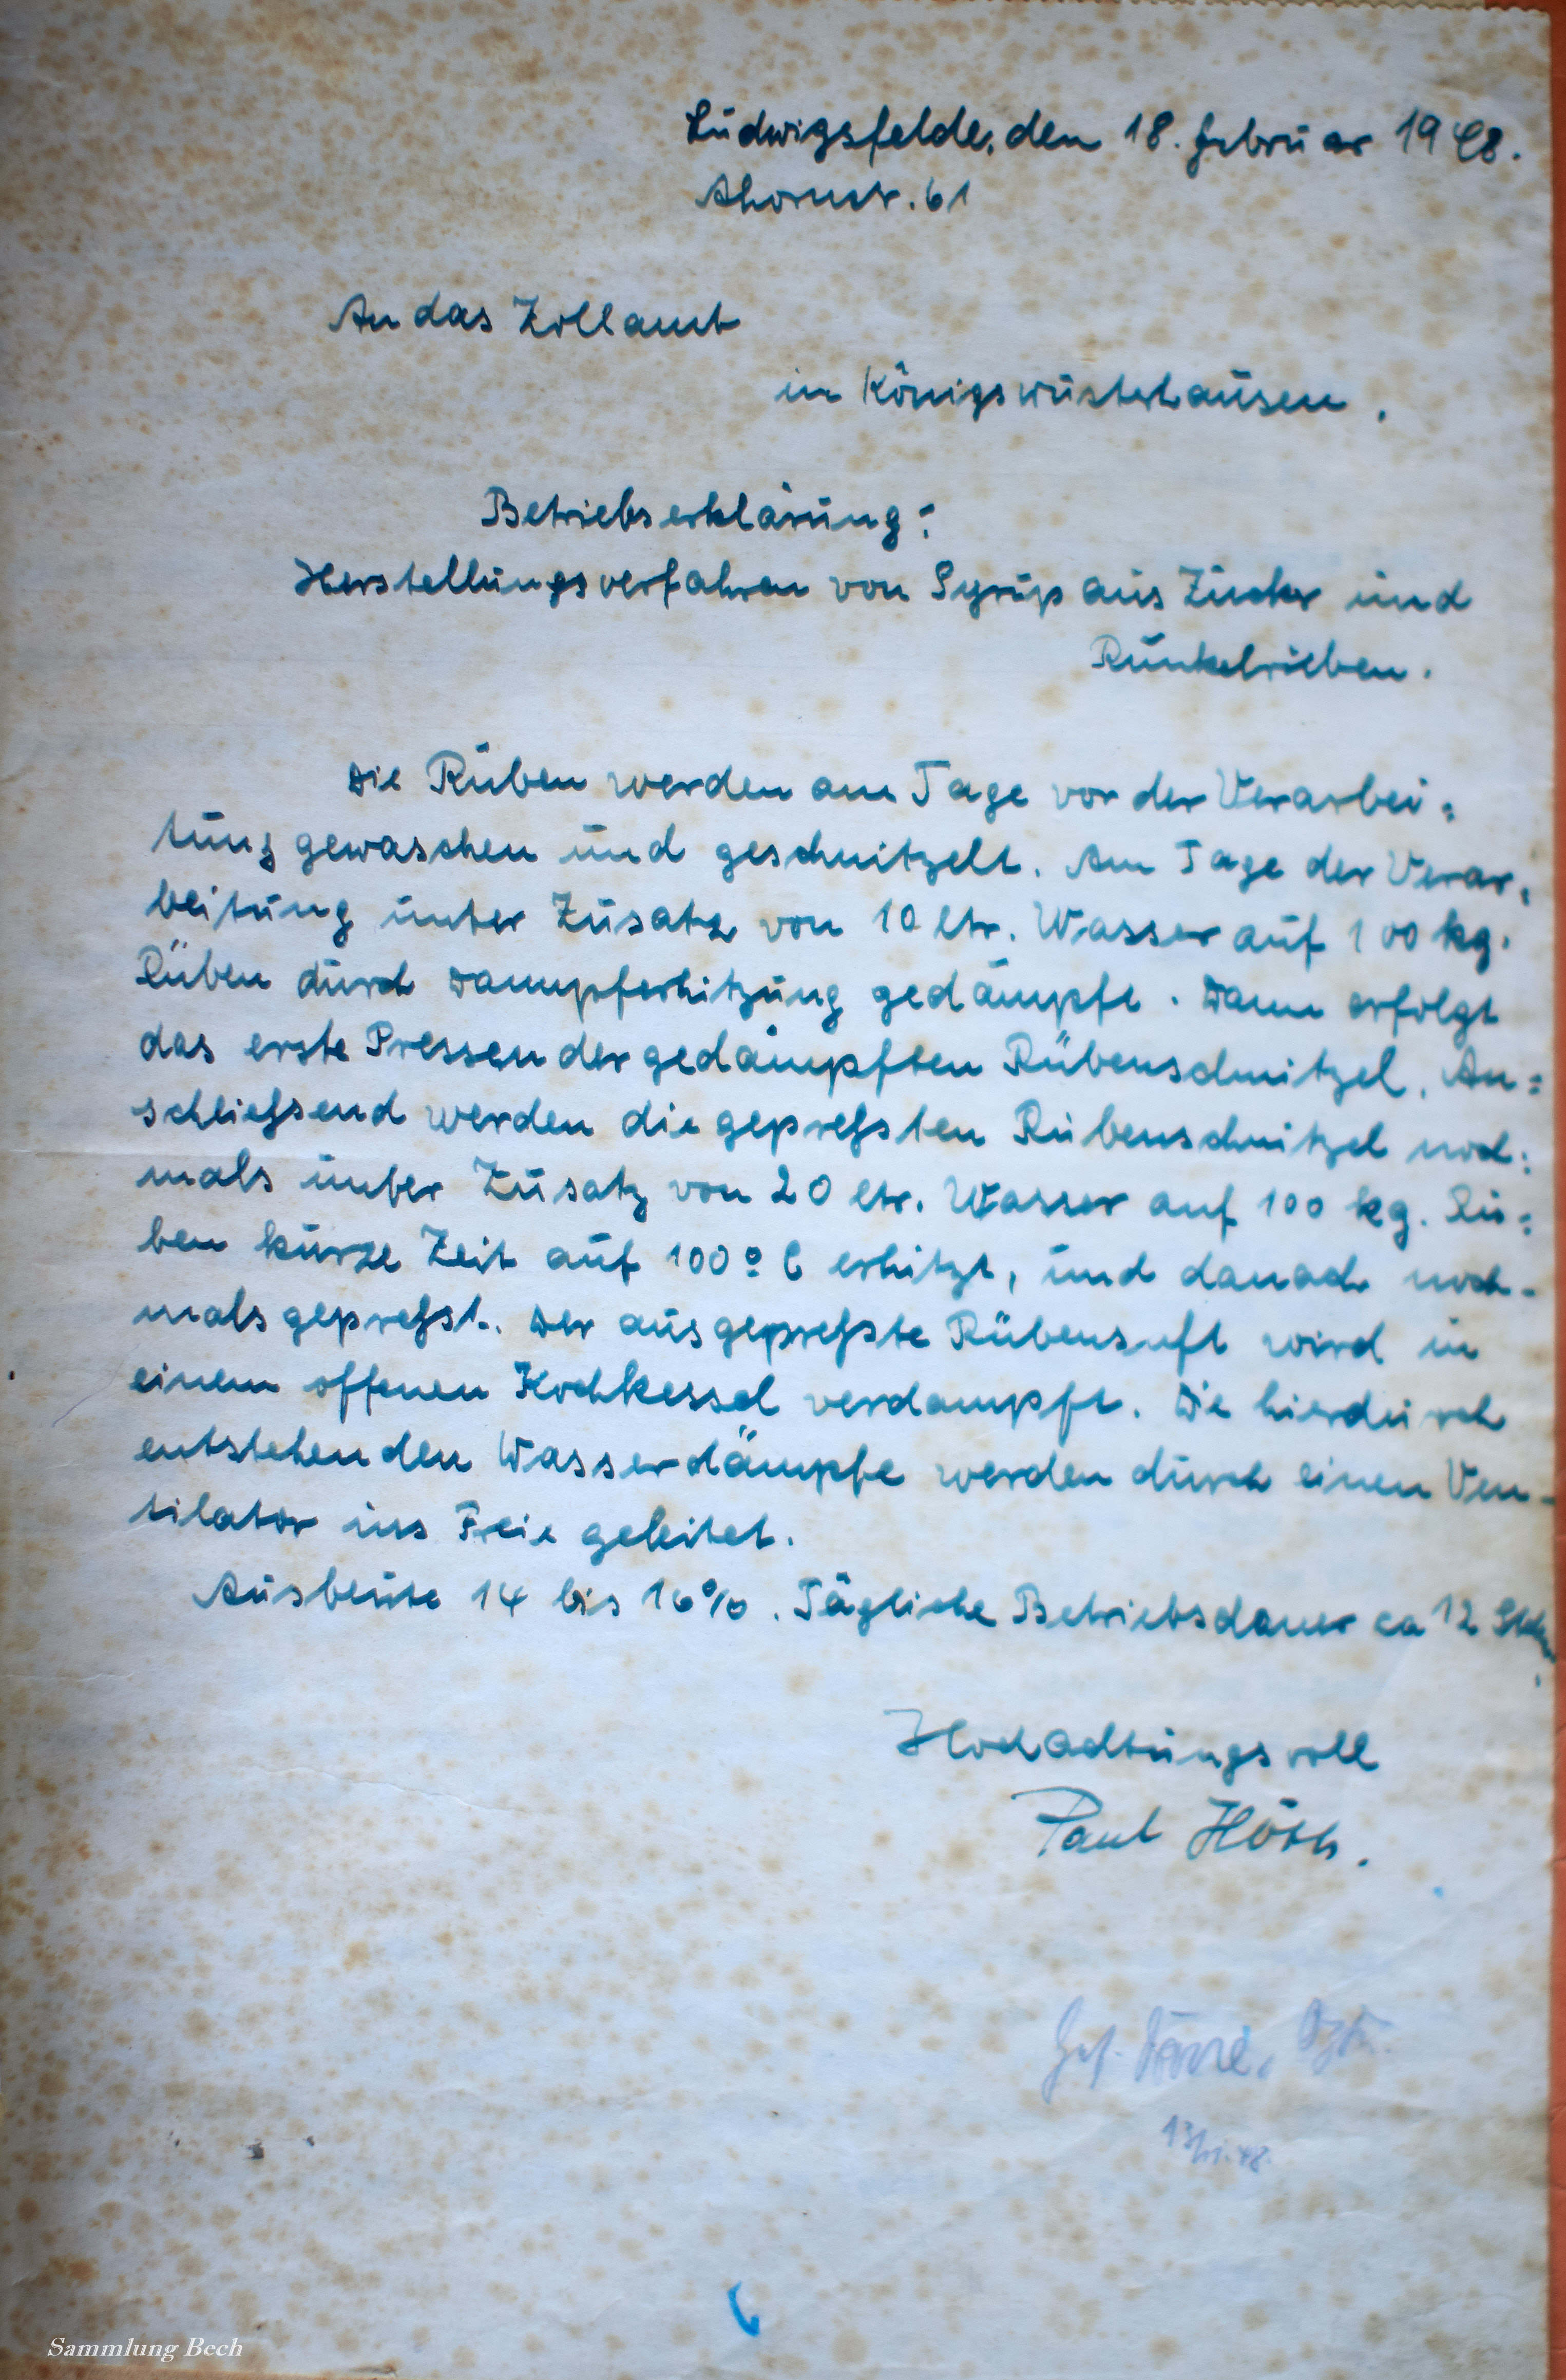 Ludwigsfelde, den 18. Februar 1948.
Ahornstr. 61
An das Zollamt
in Königswusterhausen.
Betriebserklärung:
Herstellungsverfahren von Syrup aus Zucker und
Runkelrüben.
Die Rüben werden am Tage vor der Verarbei=
tung gewaschen und geschnitzelt. Am Tage der Verar=
beitung unter Zusatz von 10 ltr. Wasser auf 100 kg.
Rüben durch Dampferhitzung gedämpft. Dann erfolgt
das erste Pressen der gedämpften Rübenschnitzel. An=
schließend werden die gepreßten Rübenschnitzel noch=
mals unter Zusatz von 20 ltr. Wasser auf 100 kg. Rü=
ben kurze Zeit auf 100° C erhitzt, und danach noch-
mals gepreßt. Der ausgepreßte Rübensaft wird in
einem offenen Kochkessel verdampft. Die hierdurch
entstehenden Wasserdämpfe werden durch einen Ven-
tilator ins Freie geleitet.
Ausbeute 14 bis 16%. Tägliche Betriebsdauer ca 12 Stdn.
Hochachtungsvoll
Paul Höth.
Sammlung Bech